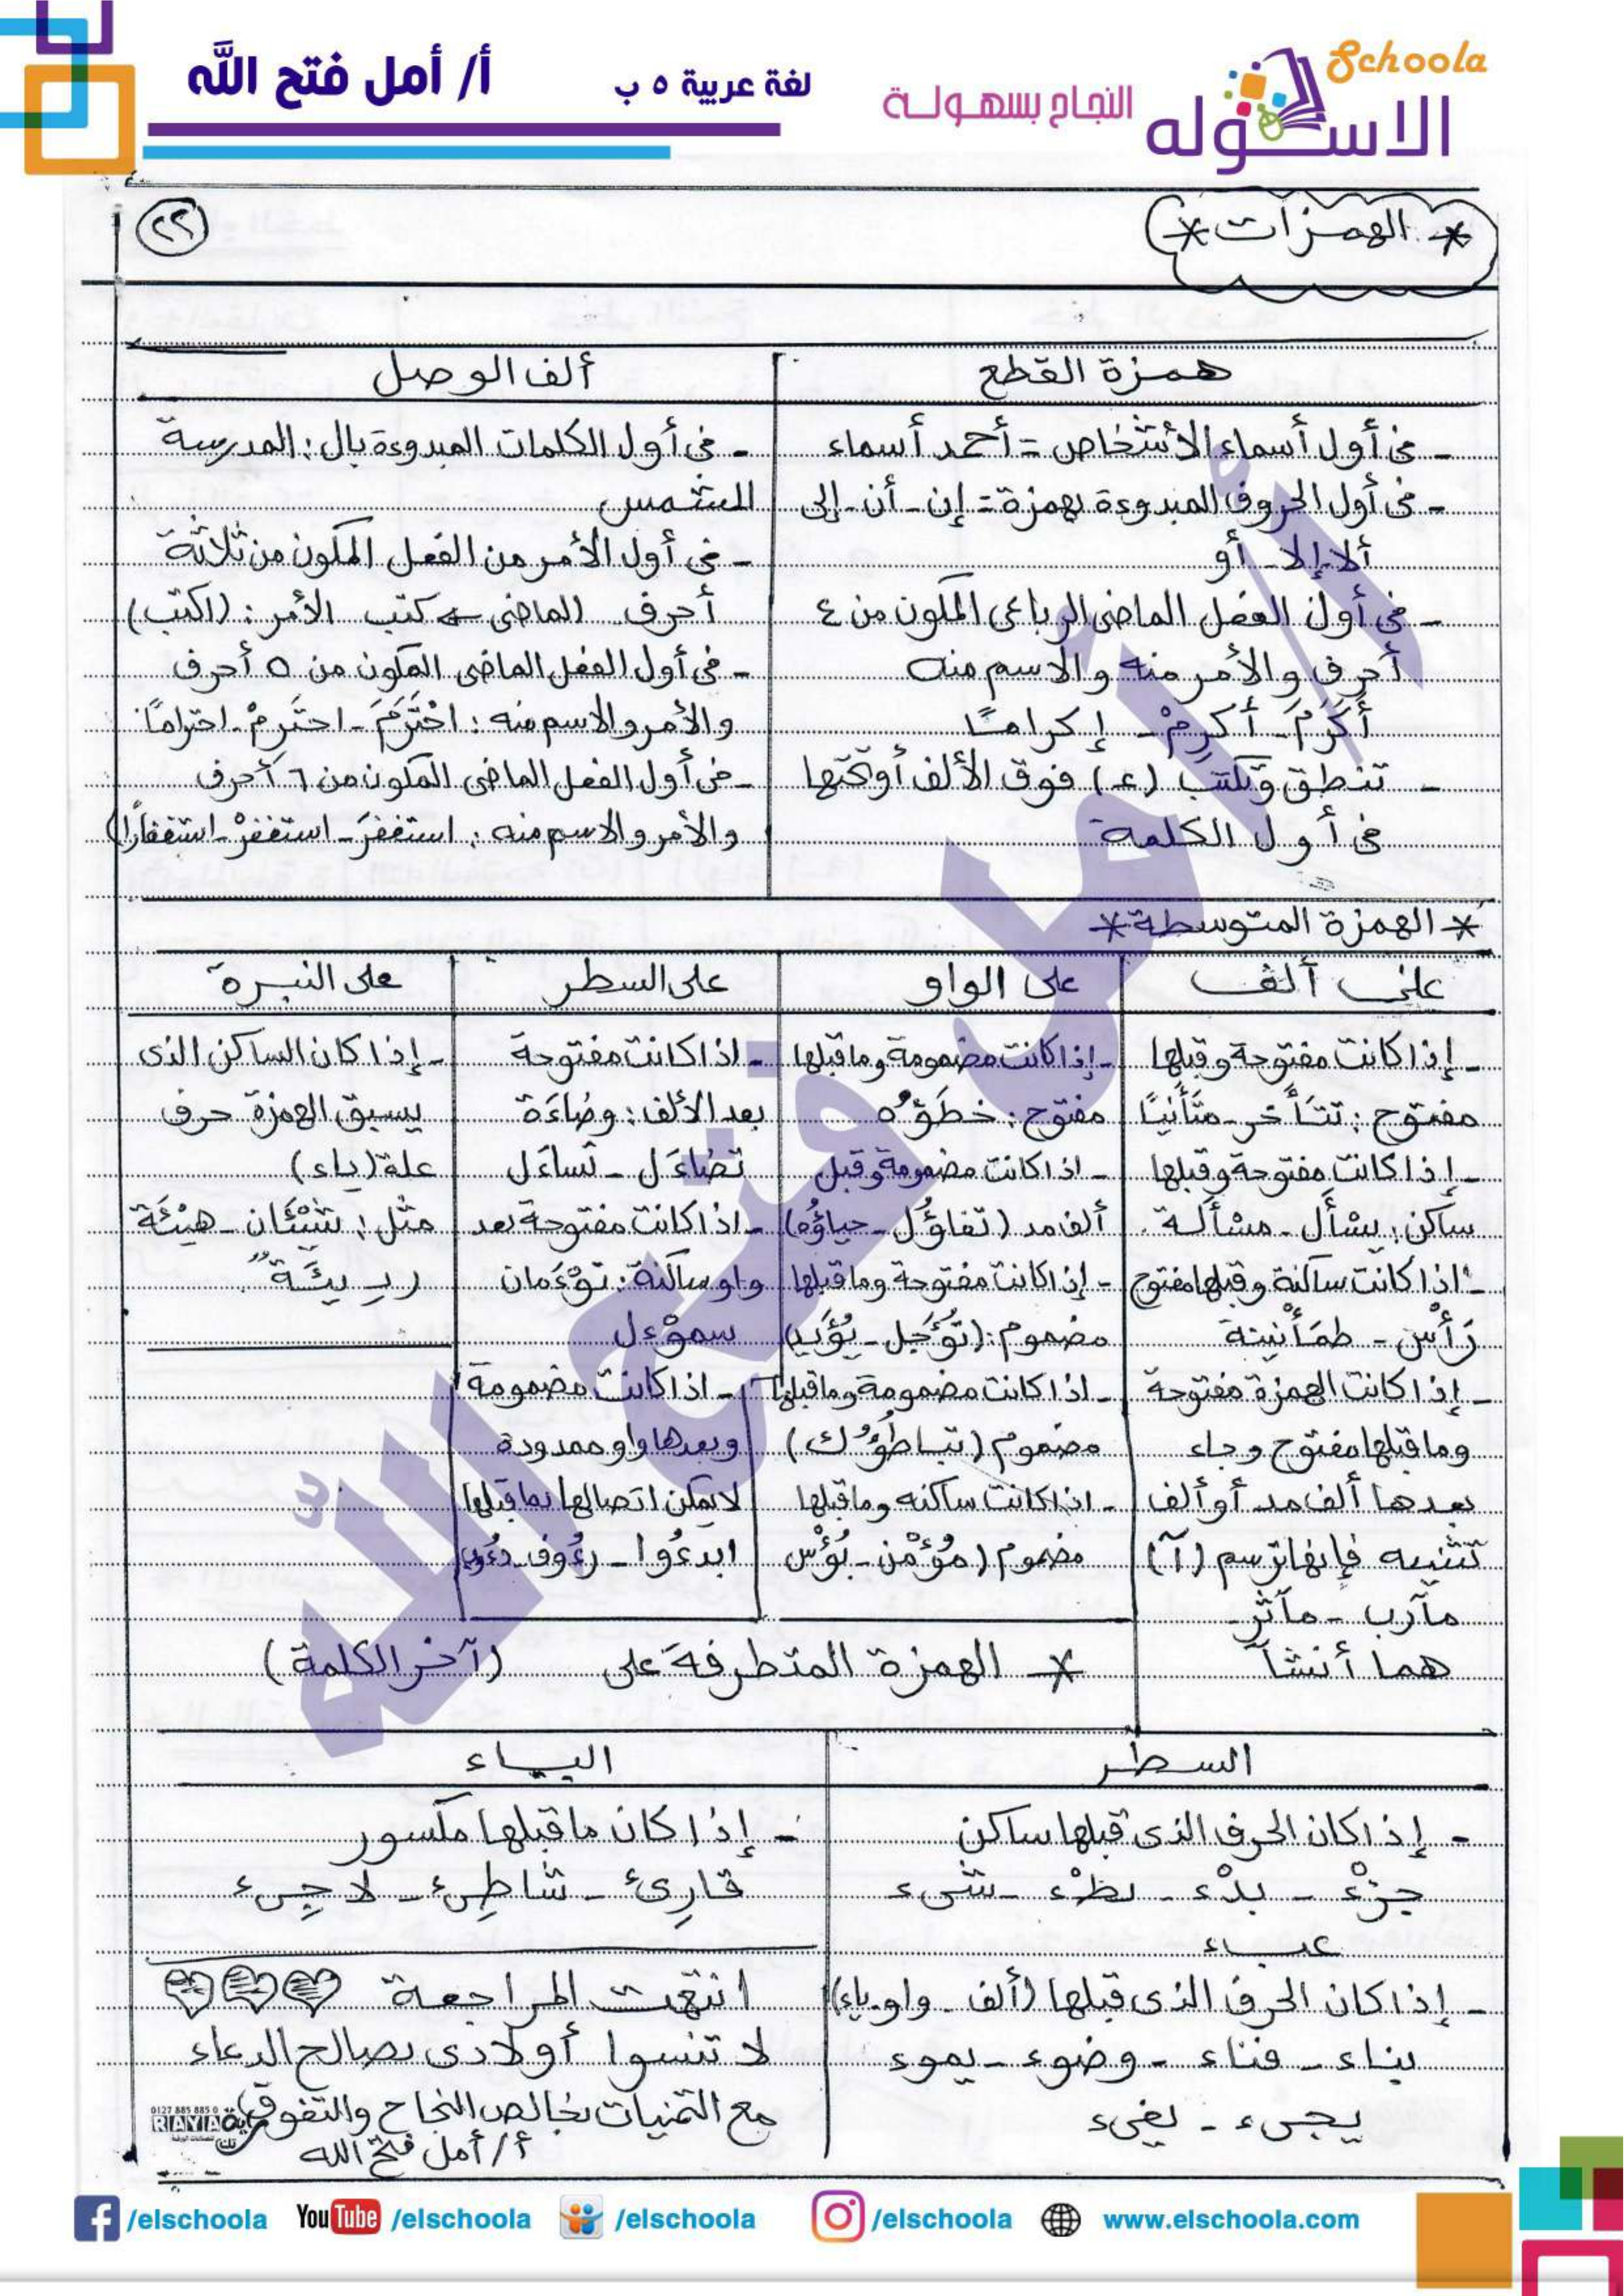 Schoola
الاسكوله
النجاح بسهولة
لغة عربية ٥ ب
أ/ أمل فتح الله
* الهمزات *
٢٢
همزة القطع
- فى أول أسماء الأشخاص = أحمد أسماء
- فى أول الحروف المبدوءة بهمزة = إن - أن - إلى
ألا - إلا - أو
- فى أول الفعل الماضى الرباعى المكون من ٤
أحرف والأمر منه والاسم منه
أَكْرَمَ - أَكرِمْ - إكرامًا
- تنطق وتكتب (ء) فوق الألف أو تحتها
فى أول الكلمة
ألف الوصل
- فى أول الكلمات المبدوءة بال : المدرسة
الشمس
- فى أول الأمر من الفعل المكون من ثلاثة
أحرف الماضى ← كتب الأمر : (اكتب)
- فى أول الفعل الماضى المكون من ٥ أحرف
والأمر والاسم منه : احْتَرَمَ - احتَرِمْ - احترامًا
- فى أول الفعل الماضى المكون من ٦ أحرف
والأمر والاسم منه : استغفرَ - استغفرْ - استغفارًا)
* الهمزة المتوسطة *
على ألف
- إذا كانت مفتوحة وقبلها
مفتوح : تتَأَخر - متَأَنيًا
- إذا كانت مفتوحة وقبلها
ساكن : يسْأَل - مسْأَلة
- اذا كانت ساكنة وقبلها مفتوح
رَأْس - طمَأْنينة
- إذا كانت الهمزة مفتوحة
وما قبلها مفتوح وجاء
بعدها ألف مد أو ألف
تثنيه فإنها ترسم (آ)
مآرب - مآثر
هما أنشآ
على الواو
- إذا كانت مضمومة وما قبلها
مفتوح : خطَؤُه
- اذا كانت مضمومة وقبل
ألف مد (تفاؤُل - حياؤُه)
- إذا كانت مفتوحة وما قبلها
مضموم : (تُؤَجل - يُؤَيد)
- اذا كانت مضمومة وما قبلها
مضموم (تباطُؤُك)
- اذا كانت ساكنه وما قبلها
مضموم (مُؤْمن - بُؤْس
على السطر
- اذا كانت مفتوحة
بعد الألف : وضاءَة
تضاءَل - تساءَل
- اذا كانت مفتوحة بعد
واو ساكنة : توْءَمان
سموْءَل
- اذا كانت مضمومة
وبعدها واو ممدودة
لا يمكن اتصالها بما قبلها
ابدءُوا - رءُوف -
على النبرة
- إذا كان الساكن الذى
يسبق الهمزة حرف
علة (ياء)
مثل : شيْئَان - هيْئَة
* الهمزة المتطرفة على (آخر الكلمة)
السطر
- إذا كان الحرف الذى قبلها ساكن
جزْء - بدْء - بطْء - شىء
عبء
- إذا كان الحرف الذى قبلها (ألف - واو - ياء)
بناء - فناء - وضوء - يموء
يجىء - يفىء
الياء
- إذا كان ما قبلها مكسور
قارِئ - شاطِىء - لاجِىء
انتهت المراجعة
لا تنسوا أولادى بصالح الدعاء
مع التمنيات بخالص النجاح والتفوق
أ/ أمل فتح الله
0127 885 885 0
RAYA
أ/ أمل فتح الله
/elschoola
YouTube /elschoola
/elschoola
/elschoola
www.elschoola.com